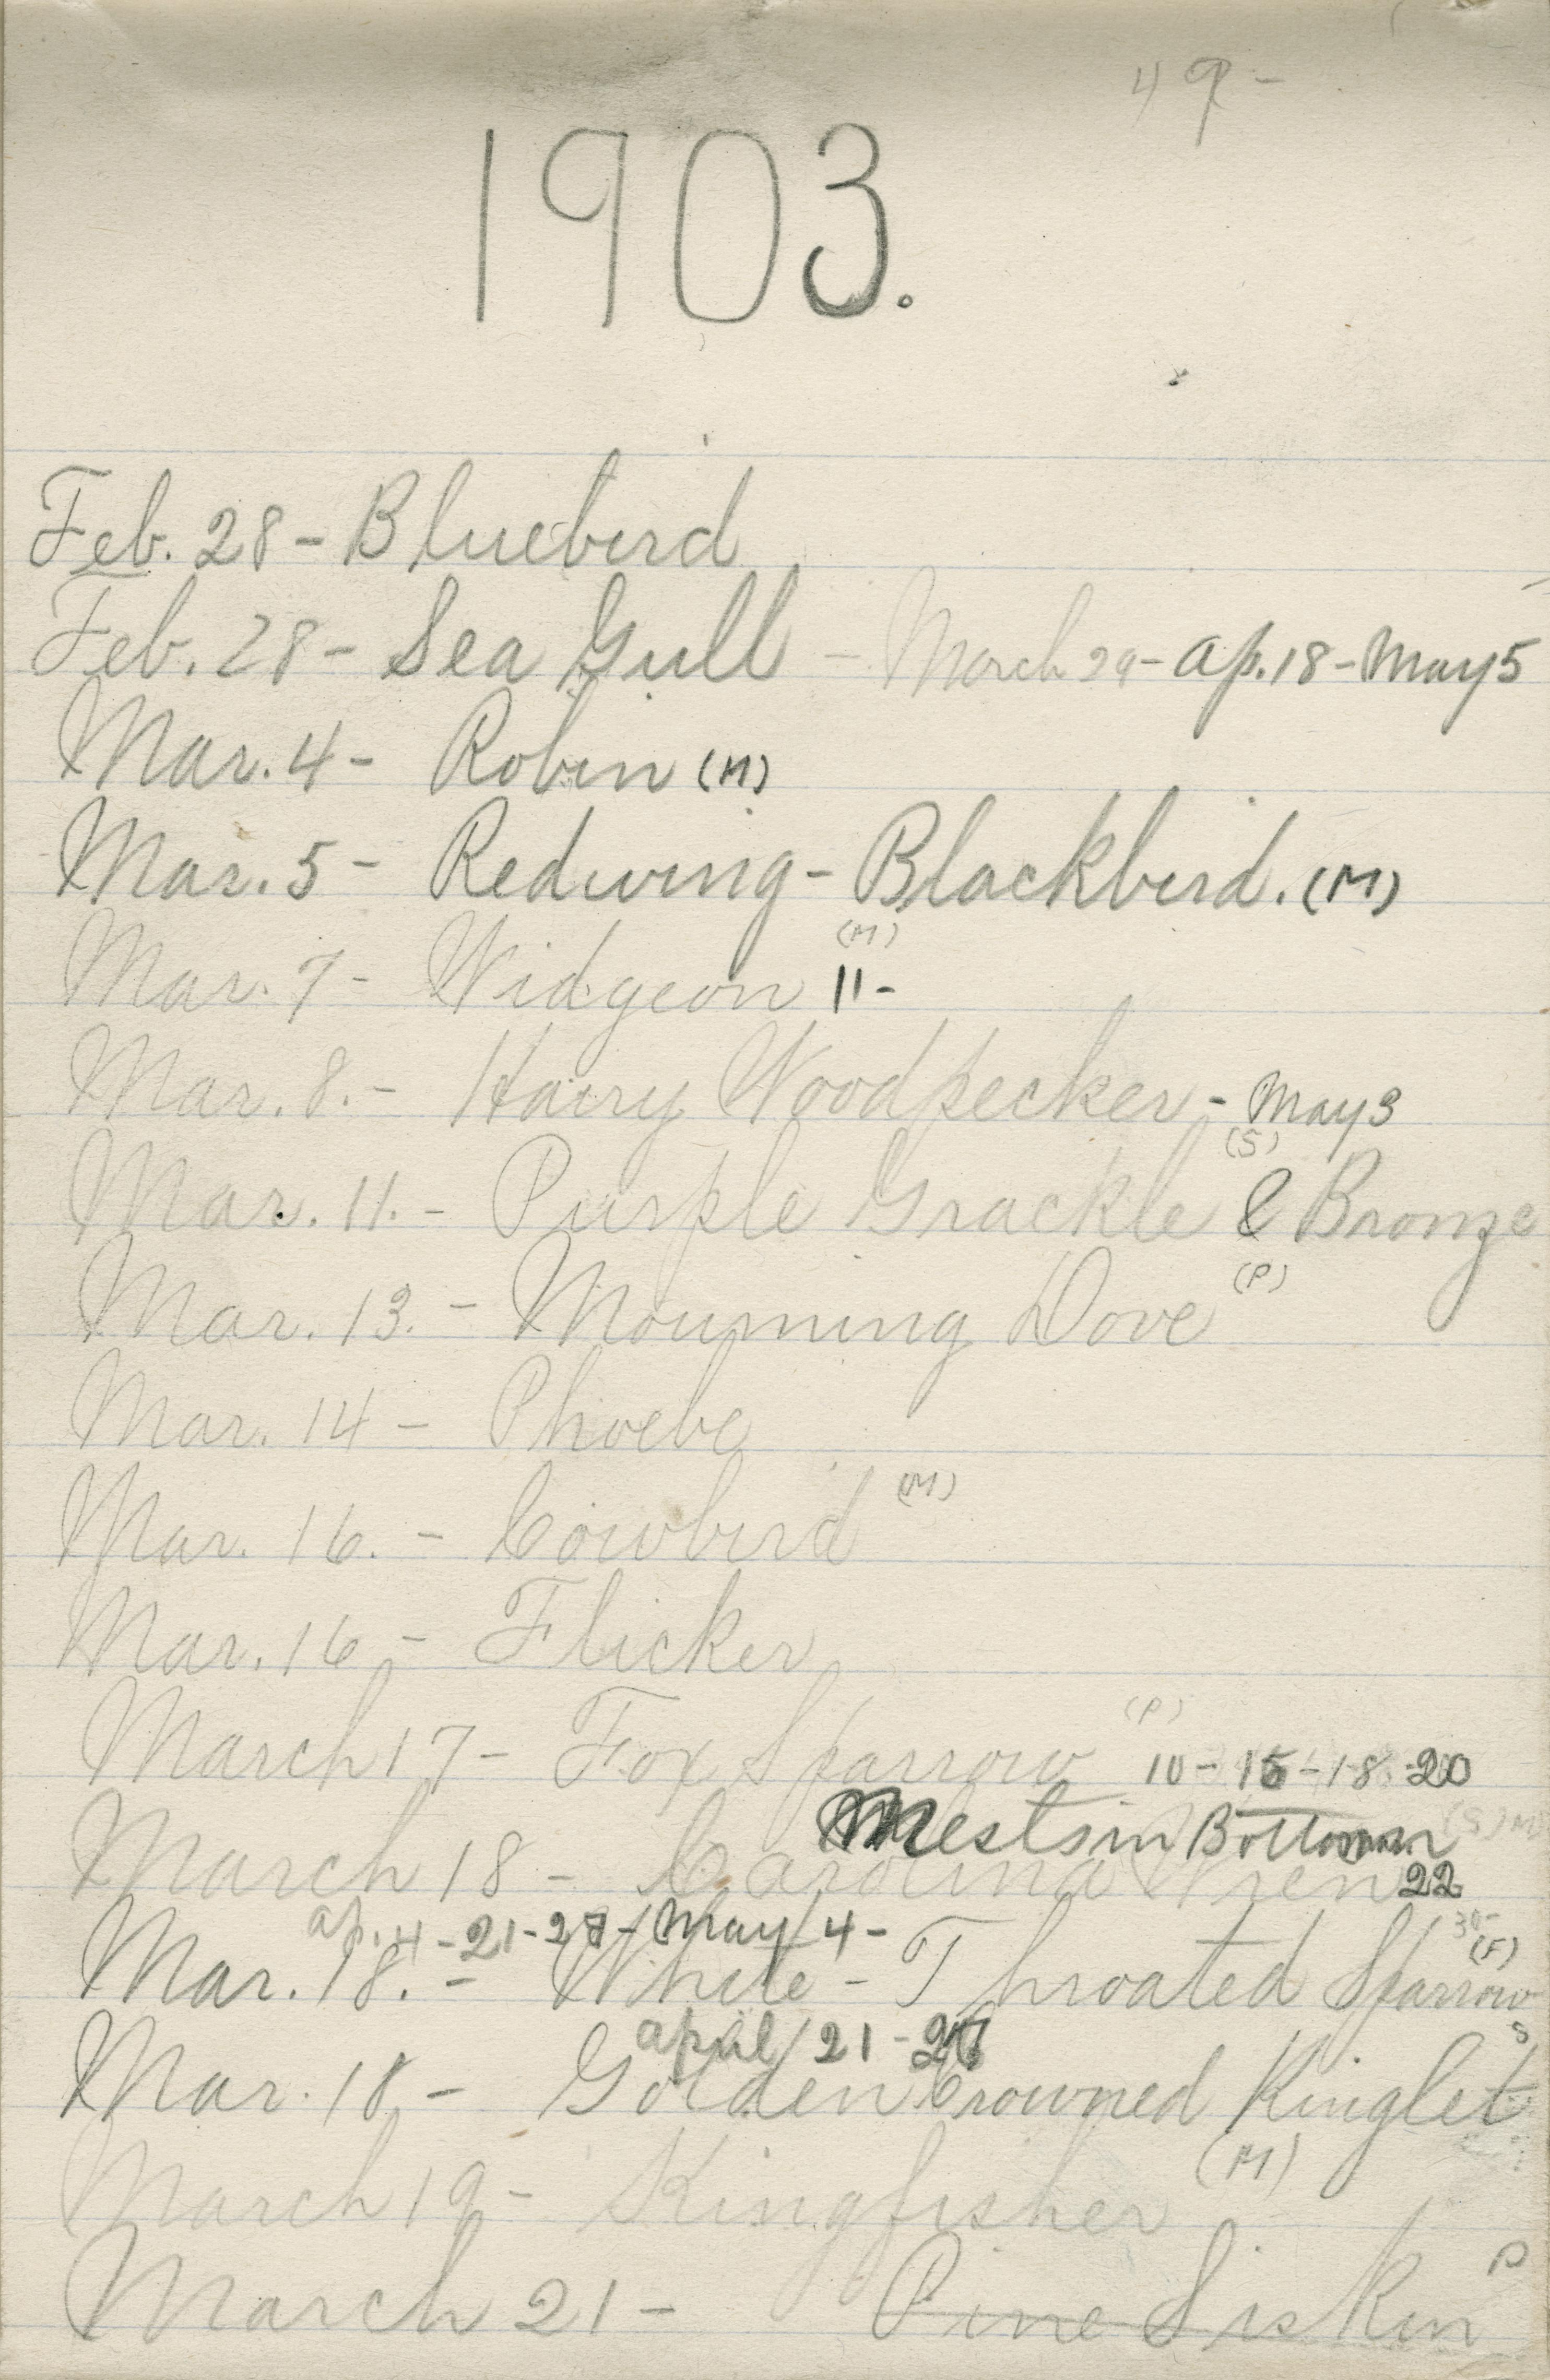 1903.
Feb. 28 - Bluebird
Feb. 28 - Sea Gull - March 29 - Ap. 18 - May 5
Mar. 4 - Robin (M)
Mar. 5 - Redwing - Blackbird. (M)
(M)
Mar. 7 - Widgeon 11 -
Mar. 8. - Hairy Woodpecker - May 3
(S)
Mar. 11. - Purple Grackle & Bronze
(P)
Mar. 13. - Mourning Dove
Mar. 14 - Phoebe
(M)
Mar. 16. - Cowbird
Mar. 16 - Flicker
(P)
March 17 - Fox Sparrow 10 - 15 - 18 - 20
in Bottom (S) M
March 18 - Carolina Wren 22
Ap. 4 - 21 - 27 - May 4 - 30 -
(F)
Mar. 18. - White - Throated Sparrow
April 21 - S
Mar. 18 - Golden Crowned Kinglet
(M)
March 19 - Kingfisher
P
March 21 - Pine Siskin